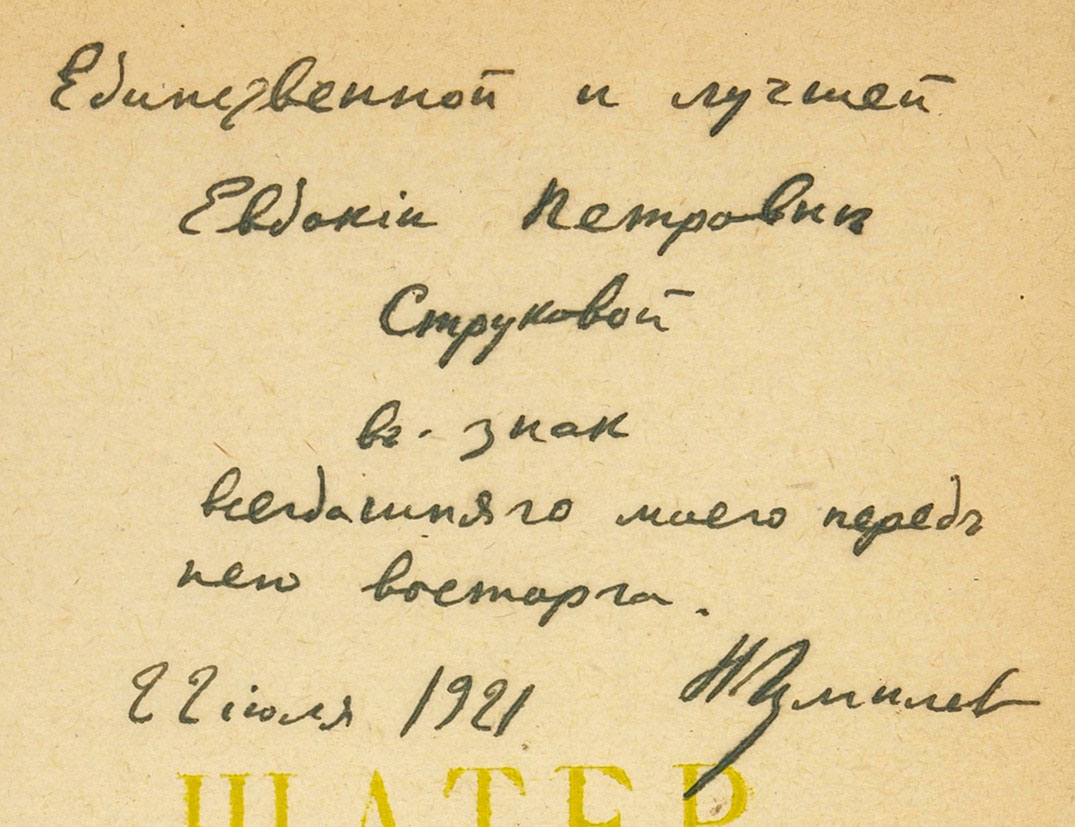 Единственной и лучшей
Евдокіи Петровнѣ
Струковой
въ знак
всегдашняго моего передъ
нею восторга.
22 іюля 1921 Н Гумилев
ШАТЕР